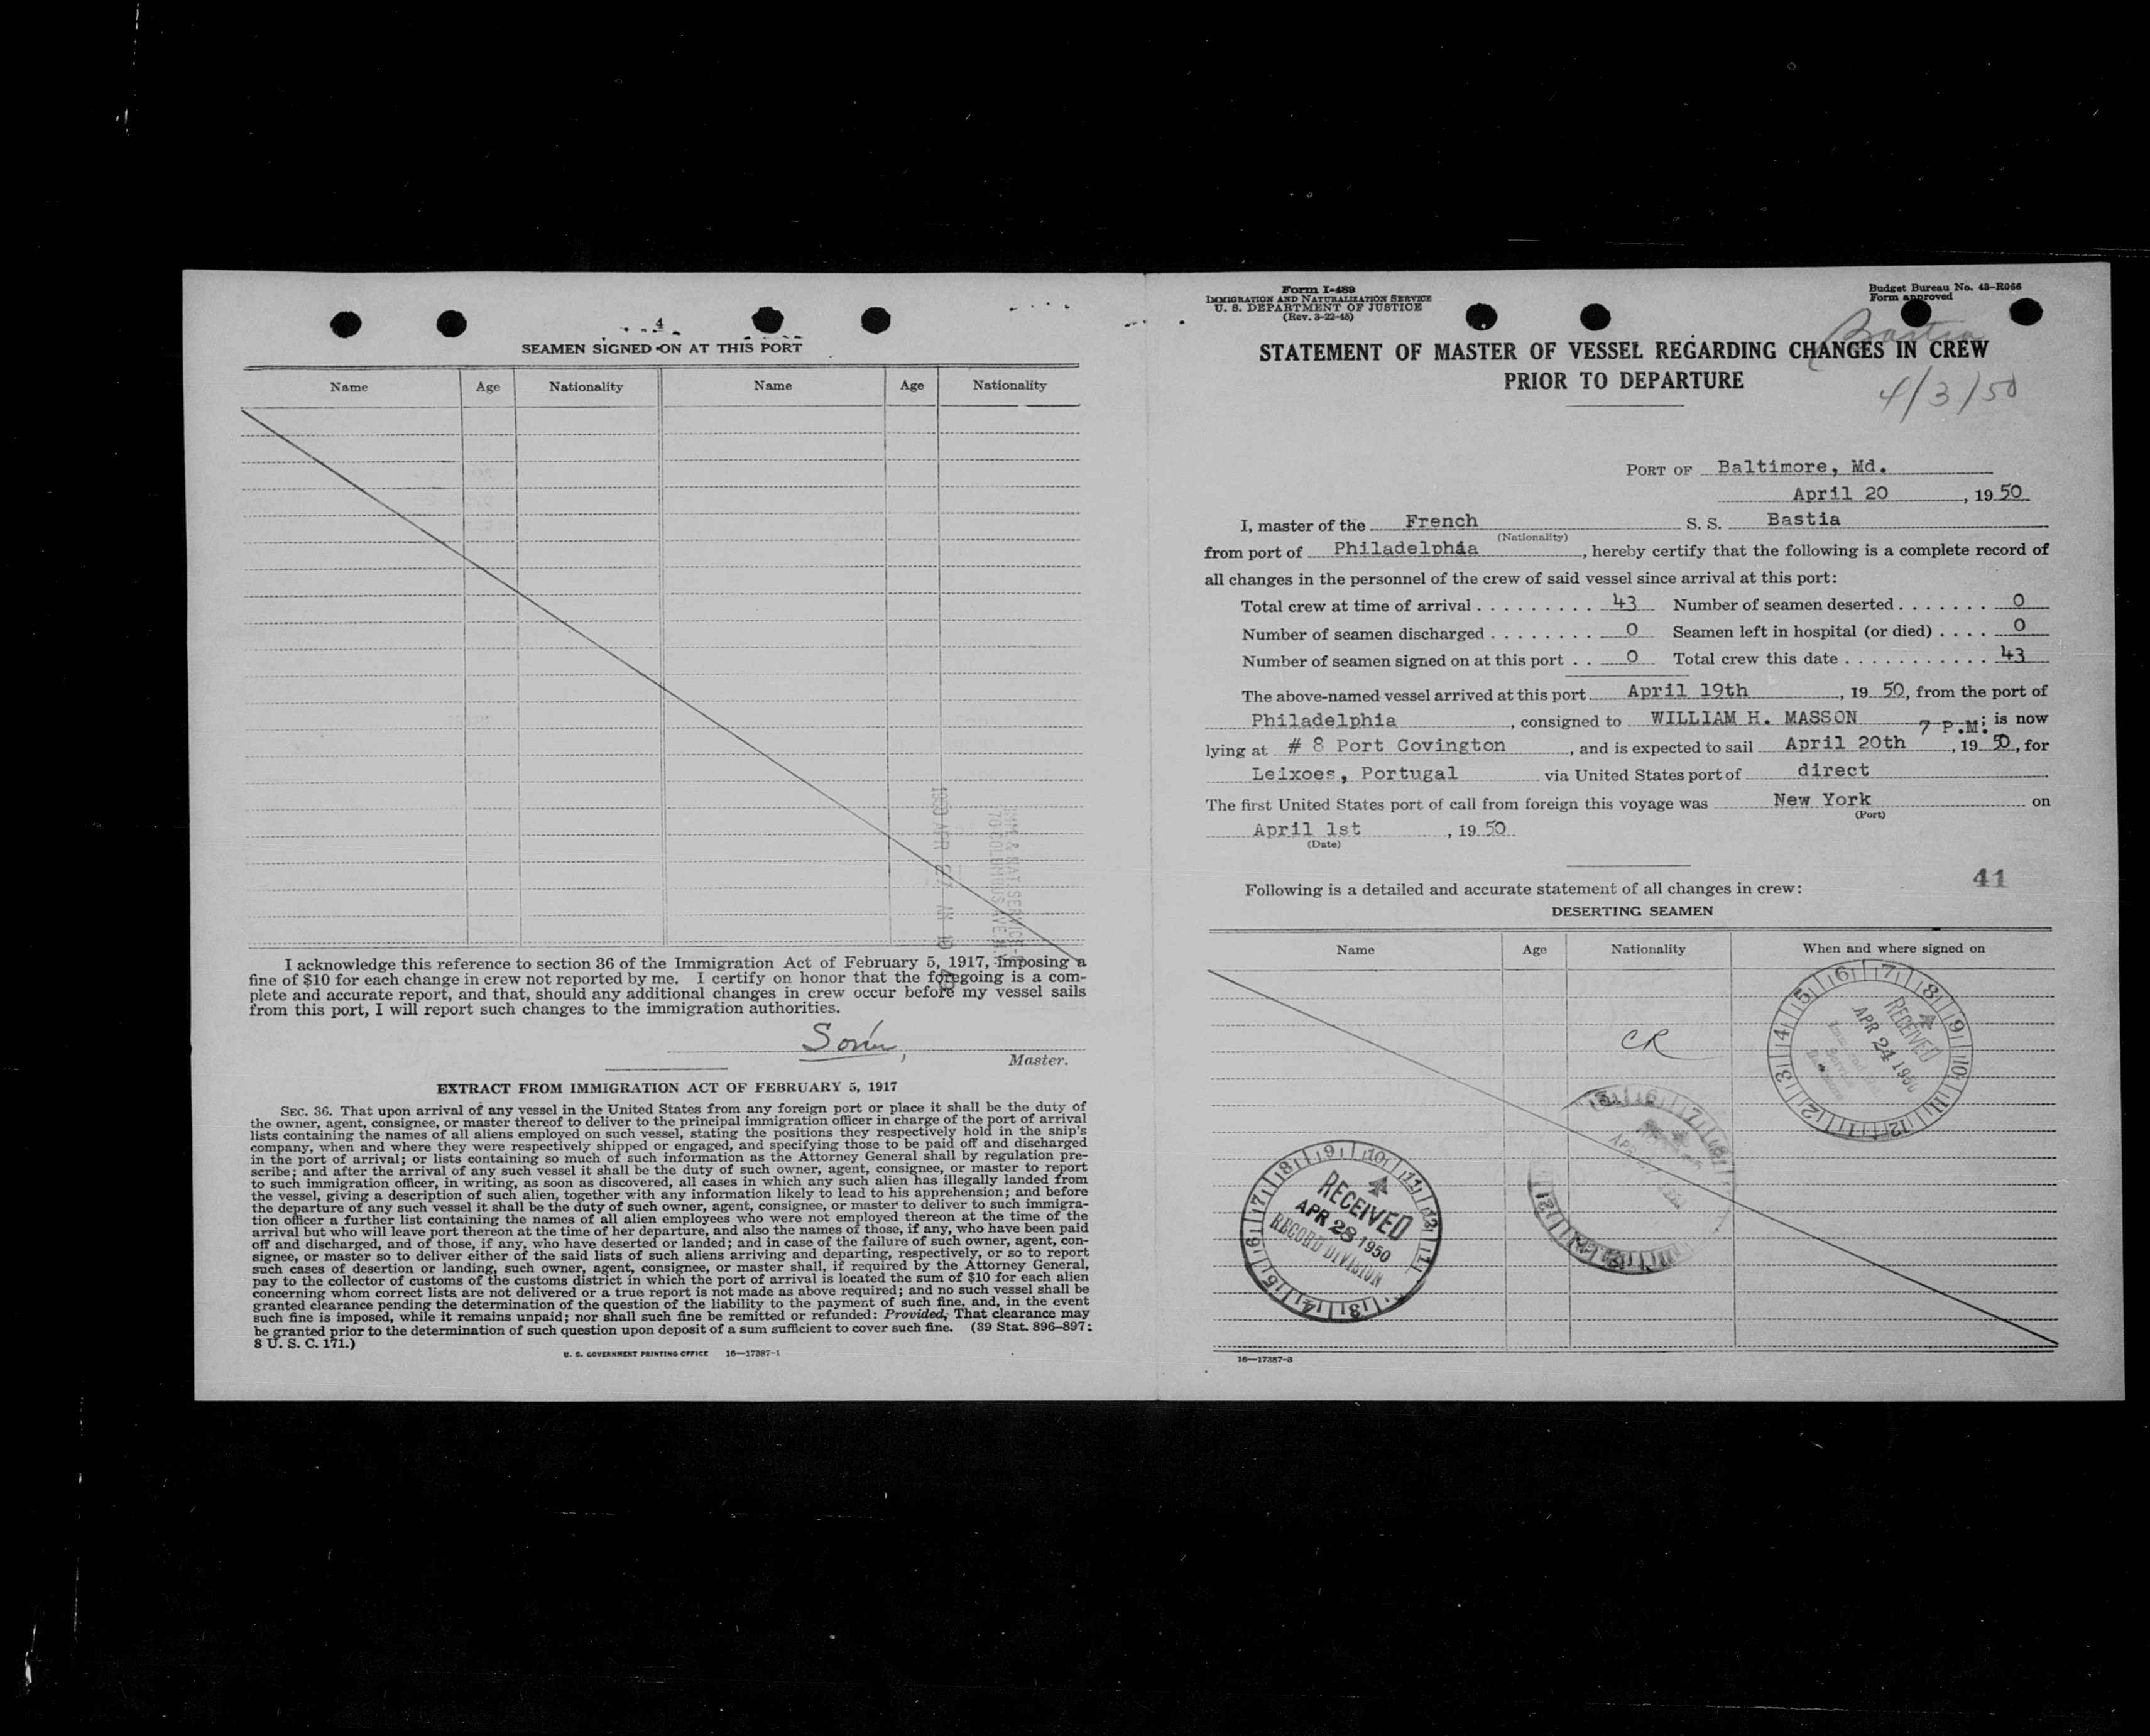 4
SEAMEN SIGNED ON AT THIS PORT
Name Age Nationality Name Age Nationality
I acknowledge this reference to section 36 of the Immigration Act of February 5, 1917, imposing a
fine of $10 for each change in crew not reported by me. I certify on honor that the foregoing is a com-
plete and accurate report, and that, should any additional changes in crew occur before my vessel sails
from this port, I will report such changes to the immigration authorities.
Master.
EXTRACT FROM IMMIGRATION ACT OF FEBRUARY 5, 1917
SEC. 36. That upon arrival of any vessel in the United States from any foreign port or place it shall be the duty of
the owner, agent, consignee, or master thereof to deliver to the principal immigration officer in charge of the port of arrival
lists containing the names of all aliens employed on such vessel, stating the positions they respectively hold in the ship's
company, when and where they were respectively shipped or engaged, and specifying those to be paid off and discharged
in the port of arrival; or lists containing so much of such information as the Attorney General shall by regulation pre-
scribe; and after the arrival of any such vessel it shall be the duty of such owner, agent, consignee, or master to report
to such immigration officer, in writing, as soon as discovered, all cases in which any such alien has illegally landed from
the vessel, giving a description of such alien, together with any information likely to lead to his apprehension; and before
the departure of any such vessel it shall be the duty of such owner, agent, consignee, or master to deliver to such immigra-
tion officer a further list containing the names of all alien employees who were not employed thereon at the time of the
arrival but who will leave port thereon at the time of her departure, and also the names of those, if any, who have been paid
off and discharged, and of those, if any, who have deserted or landed; and in case of the failure of such owner, agent, con-
signee, or master so to deliver either of the said lists of such aliens arriving and departing, respectively, or so to report
such cases of desertion or landing, such owner, agent, consignee, or master shall, if required by the Attorney General,
pay to the collector of customs of the customs district in which the port of arrival is located the sum of $10 for each alien
concerning whom correct lists are not delivered or a true report is not made as above required; and no such vessel shall be
granted clearance pending the determination of the question of the liability to the payment of such fine, and, in the event
such fine is imposed, while it remains unpaid; nor shall such fine be remitted or refunded: Provided, That clearance may
be granted prior to the determination of such question upon deposit of a sum sufficient to cover such fine. (39 Stat. 896–897;
8 U. S. C. 171.)
U. S. GOVERNMENT PRINTING OFFICE 16—17387-1
Form I-489
IMMIGRATION AND NATURALIZATION SERVICE
U. S. DEPARTMENT OF JUSTICE
(Rev. 3-22-45)
Budget Bureau No. 43-R066
Form approved
Bastia
STATEMENT OF MASTER OF VESSEL REGARDING CHANGES IN CREW
PRIOR TO DEPARTURE
4/3/50
PORT OF Baltimore, Md.
April 20, 1950
I, master of the French S. S. Bastia
(Nationality)
from port of Philadelphia, hereby certify that the following is a complete record of
all changes in the personnel of the crew of said vessel since arrival at this port:
Total crew at time of arrival . . . . . . . . . 43 Number of seamen deserted . . . . . . . 0
Number of seamen discharged . . . . . . . . 0 Seamen left in hospital (or died) . . . . 0
Number of seamen signed on at this port . . 0 Total crew this date . . . . . . . . . . . 43
The above-named vessel arrived at this port April 19th, 1950, from the port of
Philadelphia, consigned to WILLIAM H. MASSON; is now
7 P.M.
lying at # 8 Port Covington, and is expected to sail April 20th, 1950, for
Leixoes, Portugal via United States port of direct
The first United States port of call from foreign this voyage was New York on
(Port)
April 1st, 1950
(Date)
41
Following is a detailed and accurate statement of all changes in crew:
DESERTING SEAMEN
Name Age Nationality When and where signed on
RECEIVED
APR 24 1950
CR
RECEIVED
APR 28 1950
RECORD DIVISION
16—17387-3